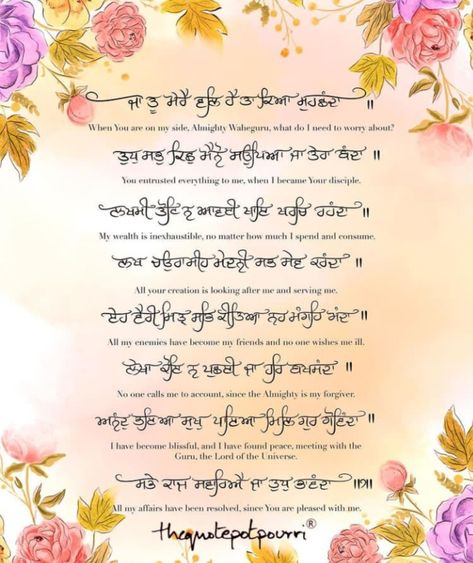 ਜਾ ਤੂ ਮੇਰੈ ਵਲਿ ਹੈ ਤਾ ਕਿਆ ਮੁਹਛੰਦਾ ॥
When You are on my side, Almighty Waheguru, what do I need to worry about?
ਤੁਧੁ ਸਭੁ ਕਿਛੁ ਮੈਨੋ ਸਉਪਿਆ ਜਾ ਤੇਰਾ ਬੰਦਾ ॥
You entrusted everything to me, when I became Your disciple.
ਲਖਮੀ ਤੋਟਿ ਨ ਆਵਈ ਖਾਇ ਖਰਚਿ ਰਹੰਦਾ ॥
My wealth is inexhaustible, no matter how much I spend and consume.
ਲਖ ਚਉਰਾਸੀਹ ਮੇਦਨੀ ਸਭ ਸੇਵ ਕਰੰਦਾ ॥
All your creation is looking after me and serving me.
ਏਹ ਵੈਰੀ ਮਿਤ੍ਰ ਸਭਿ ਕੀਤਿਆ ਨਹ ਮੰਗਹਿ ਮੰਦਾ ॥
All my enemies have become my friends and no one wishes me ill.
ਲੇਖਾ ਕੋਇ ਨ ਪੁਛਈ ਜਾ ਹਰਿ ਬਖਸੰਦਾ ॥
No one calls me to account, since the Almighty is my forgiver.
ਅਨੰਦੁ ਭਇਆ ਸੁਖੁ ਪਾਇਆ ਮਿਲਿ ਗੁਰ ਗੋਵਿੰਦਾ ॥
I have become blissful, and I have found peace, meeting with the
Guru, the Lord of the Universe.
ਸਭੇ ਕਾਜ ਸਵਾਰਿਐ ਜਾ ਤੁਧੁ ਭਾਵੰਦਾ ॥੭॥
All my affairs have been resolved, since You are pleased with me.
thequotepotpourri®